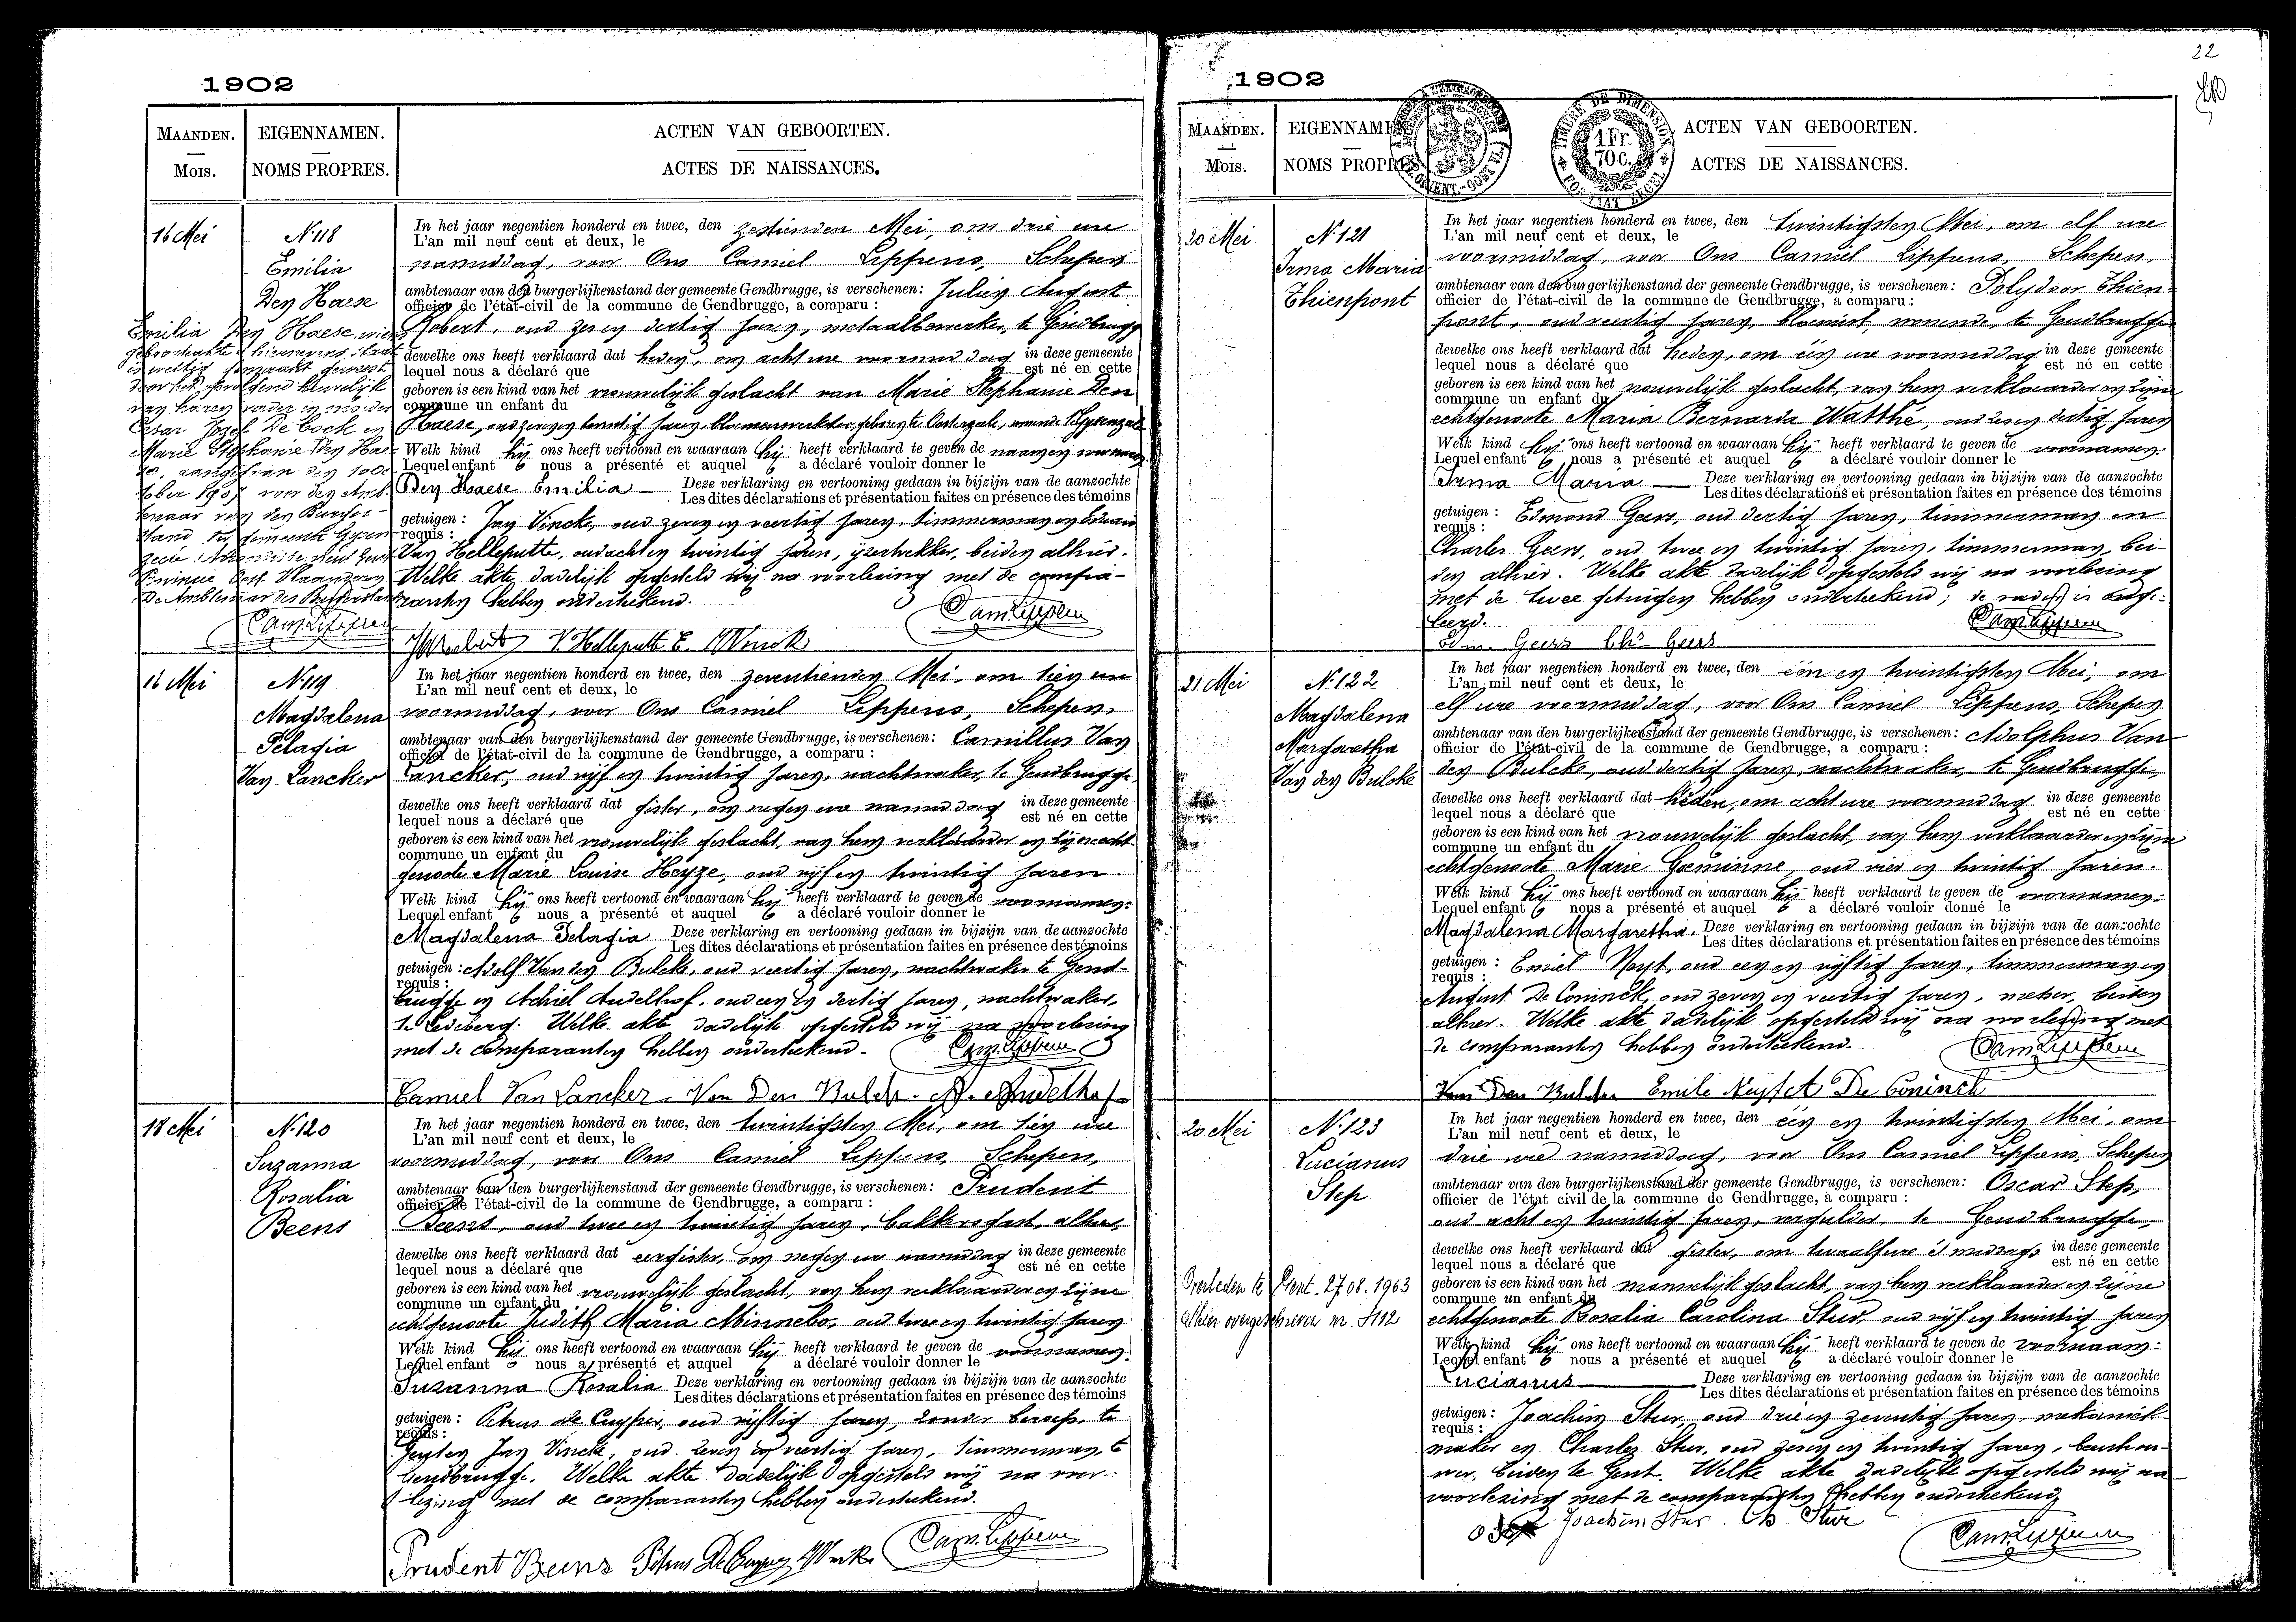 1902
MAANDEN. EIGENNAMEN. ACTEN VAN GEBOORTEN.
MOIS. NOMS PROPRES. ACTES DE NAISSANCES.
16 Mei
N. 118
Emilia
Den Haese
Emilia Den Haese
door het huwelijk
Marie Stephanie Den Hae-
In het jaar negentien honderd en twee, den zestienden Mei, om drie ure
L'an mil neuf cent et deux, le
namiddag, voor Ons Camiel Lippens, Schepen
ambtenaar van den burgerlijkenstand der gemeente Gendbrugge, is verschenen: Julien August
officier de l'état-civil de la commune de Gendbrugge, a comparu :
Robert, oud zes en dertig jaren, metaalbewerker, te Gendbrugge
dewelke ons heeft verklaard dat heden, om acht ure voormiddag in deze gemeente
lequel nous a déclaré que est né en cette
geboren is een kind van het vrouwelijk geslacht van Marie Stephanie Den
commune un enfant du
Haese, oud zeven en twintig jaren
Welk kind hij ons heeft vertoond en waaraan hij heeft verklaard te geven de
Lequel enfant nous a présenté et auquel a déclaré vouloir donner le
Den Haese Emilia Deze verklaring en vertooning gedaan in bijzijn van de aanzochte
Les dites déclarations et présentation faites en présence des témoins
getuigen : Jan Vincke, oud zeven en veertig jaren, timmerman en
requis :
Van Helleputte, oud acht en twintig jaren, ijzertrekker, beiden alhier.
Welke akte dadelijk opgesteld wij na voorlezing met de compa-
ranten hebben onderteekend.
Cam. Lippens
16 Mei
N. 119
Magdalena
Pelagia
Van Lancker
In het jaar negentien honderd en twee, den zeventienden Mei, om tien ure
L'an mil neuf cent et deux, le
voormiddag, voor Ons Camiel Lippens, Schepen,
ambtenaar van den burgerlijkenstand der gemeente Gendbrugge, is verschenen: Camillus Van
officier de l'état-civil de la commune de Gendbrugge, a comparu :
Lancker, oud vijf en twintig jaren, nachtwaker, te Gendbrugge
dewelke ons heeft verklaard dat gister, om negen ure namiddag in deze gemeente
lequel nous a déclaré que est né en cette
geboren is een kind van het vrouwelijk geslacht, van hem verklaarder en zijne echt-
commune un enfant du
genoote Marie Louise Heyze, oud vijf en twintig jaren.
Welk kind hij ons heeft vertoond en waaraan hij heeft verklaard te geven de voornamen:
Lequel enfant nous a présenté et auquel a déclaré vouloir donner le
Magdalena Pelagia Deze verklaring en vertooning gedaan in bijzijn van de aanzochte
Les dites déclarations et présentation faites en présence des témoins
getuigen : Adolf Van den Bulcke, oud veertig jaren, nachtwaker te Gend-
requis :
brugge en Achiel Audelhof, oud een en dertig jaren, nachtwaker,
te Ledeberg. Welke akte dadelijk opgesteld wij na voorlezing
met de comparanten hebben onderteekend. Cam. Lippens
Camiel Van Lancker Van Den Bulck A. Audelhof
18 Mei
N. 120
Suzanna
Rosalia
Beens
In het jaar negentien honderd en twee, den twintigsten Mei, om tien ure
L'an mil neuf cent et deux, le
voormiddag, voor Ons Camiel Lippens, Schepen,
ambtenaar van den burgerlijkenstand der gemeente Gendbrugge, is verschenen: Prudent
officier de l'état-civil de la commune de Gendbrugge, a comparu :
Beens, oud twee en twintig jaren, bakkersgast, alhier
dewelke ons heeft verklaard dat eergister, om negen ure namiddag in deze gemeente
lequel nous a déclaré que est né en cette
geboren is een kind van het vrouwelijk geslacht, van hem verklaarder en zijne
commune un enfant du
echtgenoote Judith Maria Minnebo, oud twee en twintig jaren
Welk kind hij ons heeft vertoond en waaraan hij heeft verklaard te geven de voornamen:
Lequel enfant nous a présenté et auquel a déclaré vouloir donner le
Suzanna Rosalia Deze verklaring en vertooning gedaan in bijzijn van de aanzochte
Les dites déclarations et présentation faites en présence des témoins
getuigen : Petrus de Cuyper, oud vijftig jaren, zonder beroep, te
requis :
Jan Vincke, oud zeven en veertig jaren, timmerman, te
Gendbrugge. Welke akte dadelijk opgesteld wij na voor-
lezing met de comparanten hebben onderteekend.
Prudent Beens Petrus De Cuyper Cam. Lippens
22
1902
MAANDEN. EIGENNAMEN. ACTEN VAN GEBOORTEN.
MOIS. NOMS PROPRES. ACTES DE NAISSANCES.
TIMBRE DE DIMENSION
1 Fr.
70 C.
20 Mei
N. 121
Irma Maria
Thienpont
In het jaar negentien honderd en twee, den twintigsten Mei, om elf ure
L'an mil neuf cent et deux, le
voormiddag, voor Ons Camiel Lippens, Schepen,
ambtenaar van den burgerlijkenstand der gemeente Gendbrugge, is verschenen: Polydoor Thien-
officier de l'état-civil de la commune de Gendbrugge, a comparu :
pont, oud veertig jaren, bloemist, wonende te Gendbrugge
dewelke ons heeft verklaard dat heden, om één ure voormiddag in deze gemeente
lequel nous a déclaré que est né en cette
geboren is een kind van het vrouwelijk geslacht, van hem verklaarder en zijne
commune un enfant du
echtgenoote Maria Bernarda Watthé, oud zeven dertig jaren
Welk kind hij ons heeft vertoond en waaraan hij heeft verklaard te geven de voornamen:
Lequel enfant nous a présenté et auquel a déclaré vouloir donner le
Irma Maria Deze verklaring en vertooning gedaan in bijzijn van de aanzochte
Les dites déclarations et présentation faites en présence des témoins
getuigen : Edmond Geers, oud dertig jaren, timmerman en
requis :
Charles Geers, oud twee en twintig jaren, timmerman, bei-
den alhier. Welke akte dadelijk opgesteld wij na voorlezing
met de twee getuigen hebben onderteekend; de vader is onge-
leerd. Cam. Lippens
Edm. Geers Chs Geers
21 Mei
N. 122
Magdalena
Margaretha
Van den Bulcke
In het jaar negentien honderd en twee, den één en twintigsten Mei, om
L'an mil neuf cent et deux, le
elf ure voormiddag, voor Ons Camiel Lippens, Schepen
ambtenaar van den burgerlijkenstand der gemeente Gendbrugge, is verschenen: Adolphus Van
officier de l'état-civil de la commune de Gendbrugge, a comparu :
den Bulcke, oud dertig jaren, nachtwaker, te Gendbrugge,
dewelke ons heeft verklaard dat heden, om acht ure voormiddag in deze gemeente
lequel nous a déclaré que est né en cette
geboren is een kind van het vrouwelijk geslacht, van hem verklaarder en zijne
commune un enfant du
echtgenoote Marie Goeminne, oud vier en twintig jaren.
Welk kind hij ons heeft vertoond en waaraan hij heeft verklaard te geven de voornamen:
Lequel enfant nous a présenté et auquel a déclaré vouloir donné le
Magdalena Margaretha. Deze verklaring en vertooning gedaan in bijzijn van de aanzochte
Les dites déclarations et présentation faites en présence des témoins
getuigen : Emiel Nuyt, oud een en vijftig jaren, timmerman en
requis :
August De Coninck, oud zeven en veertig jaren, metser, beiden
alhier. Welke akte dadelijk opgesteld wij na voorlezing met
de comparanten hebben onderteekend. Cam. Lippens
Van Den Bulcke Emile Nuyt A De Coninck
20 Mei
N. 123
Lucianus
Step
Overleden te Gent. 27.08.1963
Alhier overgeschreven nr. 3112
In het jaar negentien honderd en twee, den één en twintigsten Mei, om
L'an mil neuf cent et deux, le
drie ure namiddag, voor Ons Camiel Lippens, Schepen
ambtenaar van den burgerlijkenstand der gemeente Gendbrugge, is verschenen: Oscar Step,
officier de l'état civil de la commune de Gendbrugge, a comparu :
oud acht en twintig jaren, vergulder, te Gendbrugge,
dewelke ons heeft verklaard dat gister, om twaalf ure 's middags in deze gemeente
lequel nous a déclaré que est né en cette
geboren is een kind van het mannelijk geslacht, van hem verklaarder en zijne
commune un enfant du
echtgenoote Rosalia Carolina Stur, oud vijf en twintig jaren
Welk kind hij ons heeft vertoond en waaraan hij heeft verklaard te geven de voornaam:
Lequel enfant nous a présenté et auquel a déclaré vouloir donner le
Lucianus Deze verklaring en vertooning gedaan in bijzijn van de aanzochte
Les dites déclarations et présentation faites en présence des témoins
getuigen : Joachim Stur, oud drie en zeventig jaren, mekaniek-
requis :
maker en Charles Stur, oud zeven en twintig jaren,
beiden te Gent. Welke akte dadelijk opgesteld wij na
voorlezing met de comparanten hebben onderteekend
O Step Joachim Stur. Ch Stur
Cam. Lippens